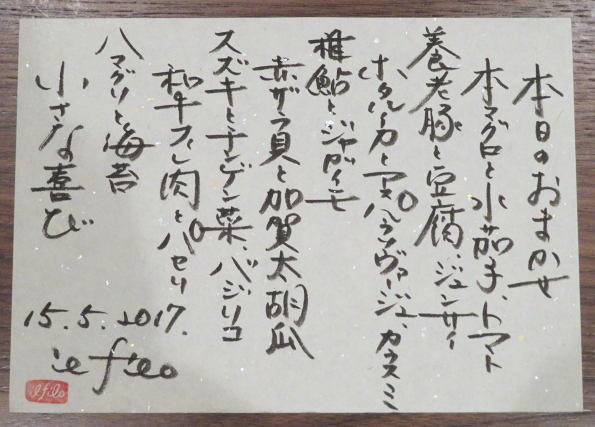 本日のおまかせ
本マグロと水茄子、トマト
養老豚と豆腐、ジュンサイ
ホタルイカとアスパラソヴァージュ、カラスミ
稚鮎とジャガイモ
赤ザラ貝と加賀太胡瓜
スズキとチンゲン菜、バジリコ
和牛フィレ肉とパセリ
ハマグリと海苔
小さな喜び
15.5.2017.
il filo
il filo